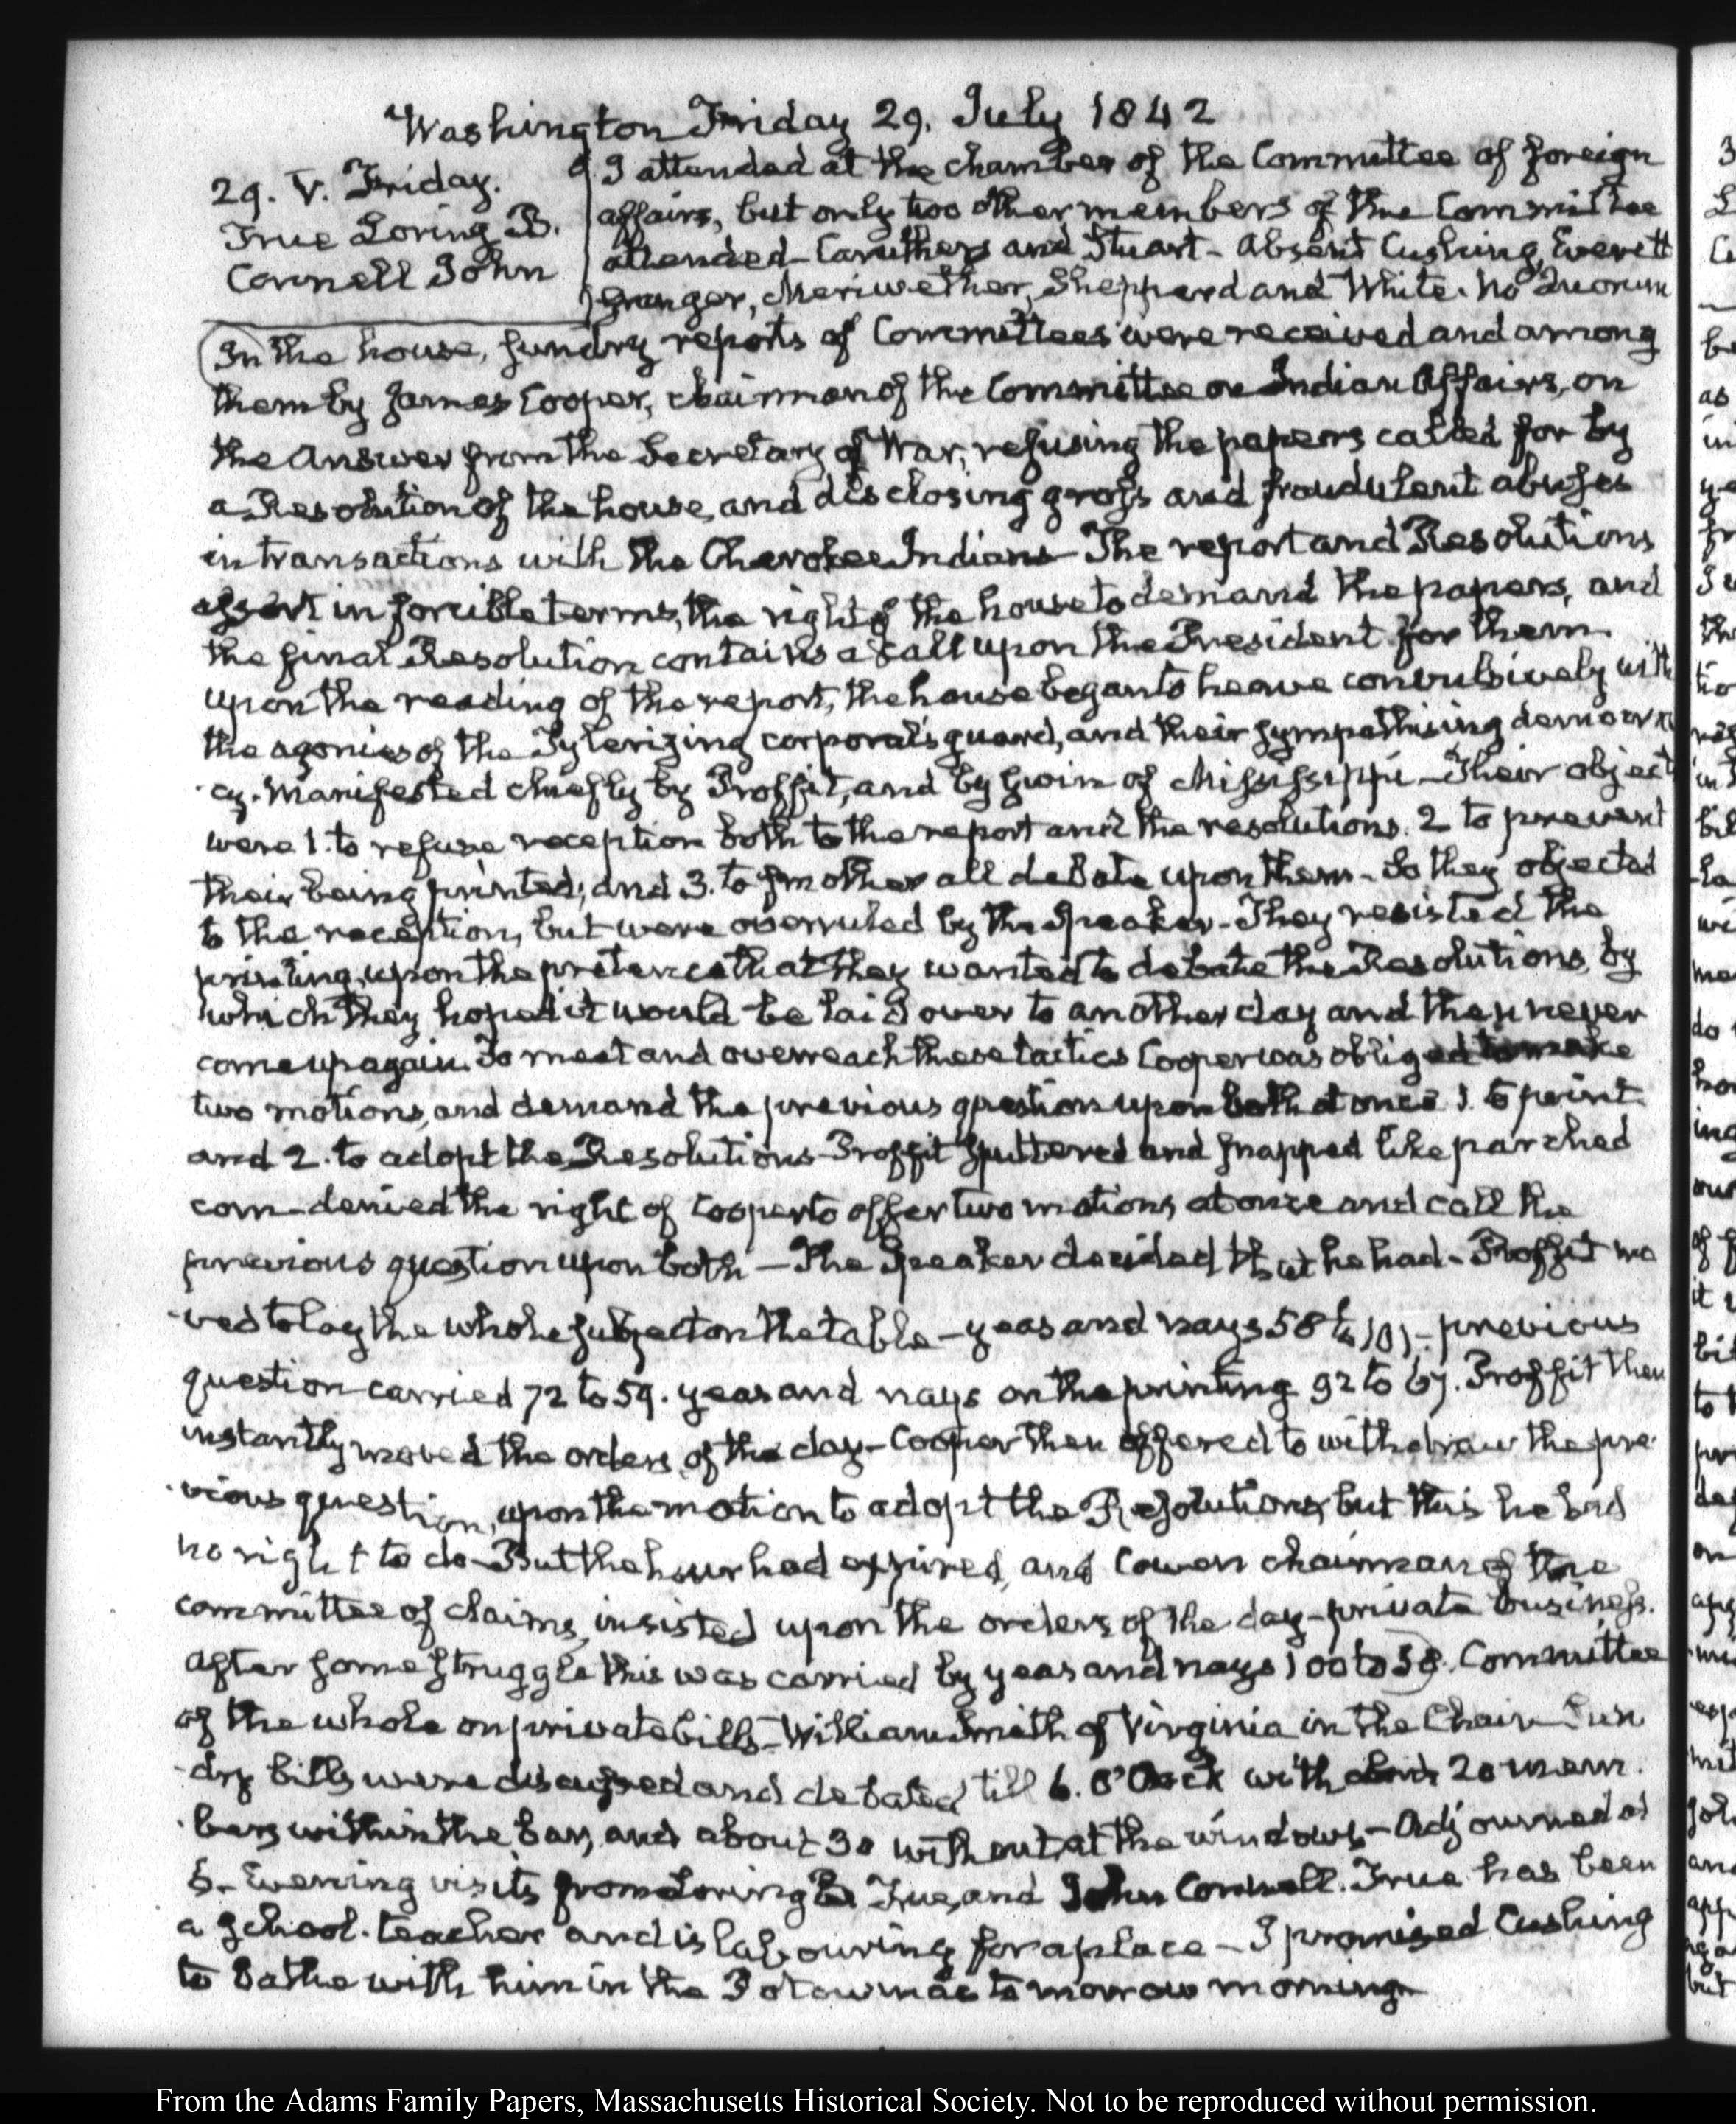 Washington Friday 29. July 1842
29. V. Friday.
True Loring B.
Connell John
I attended at the chamber of the Committee of foreign
affairs, but only two other members of the Committee
attended—Caruthers and Stuart—Absent Cushing, Everett
Granger, Meriwether, Shepperd and White. No Quorum
In the house, sundry reports of Committees were received and among
them by James Cooper, chairman of the Committee on Indian Affairs, on
the Answer from the Secretary of War, refusing the papers called for by
a Resolution of the house, and disclosing gross and fraudulent abuses
in transactions with the Cherokee Indians—The report and Resolutions
assert in forcible terms, the right of the house to demand the papers, and
the final Resolution contains a call upon the President for them
upon the reading of the report, the house began to heave convulsively with
the agonies of the Tylerizing corporal's guard, and their sympathising democra
cy. Manifested chiefly by Proffit, and by Gwin of Mississippi—Their object
were 1. to refuse reception both to the report and the resolutions. 2 to prevent
their being printed; and 3. to smother all debate upon them—So they objected
to the reception, but were overruled by the Speaker—They resisted the
printing, upon the pretence that they wanted to debate the Resolutions, by
which they hoped it would be laid over to another day and then never
come up again. To meet and overreach these tactics Cooper was obliged to make
two motions, and demand the previous question upon both at once 1. to print
and 2. to adopt the Resolutions—Proffit sputtered and snapped like parched
corn—denied the right of Cooper to offer two motions at once and call the
previous question upon both—The Speaker decided that he had—Proffit mo
ved to lay the whole subject on the table—yeas and nays 58 to 101—previous
question carried 72 to 59. yeas and nays on the printing 92 to 67. Proffit then
instantly moved the orders of the day—Cooper then offered to withdraw the pre
vious question, upon the motion to adopt the Resolutions, but this he had
no right to do—But the hour had expired, and Cowen chairman of the
committee of claims, insisted upon the orders of the day—private business.
After some struggle this was carried by yeas and nays 100 to 58. Committee
of the whole on private bills—William Smith of Virginia in the Chair—Sun
dry bills were discussed and debated till 6. O'Clock with about 20 mem
bers within the bar, and about 30 without, at the windows—Adjourned at
6—Evening visits from Loring B True, and John Connell. True has been
a school-teacher and is labouring for a place—I promised Cushing
to bathe with him in the Potowmac to morrow morning
From the Adams Family Papers, Massachusetts Historical Society. Not to be reproduced without permission.